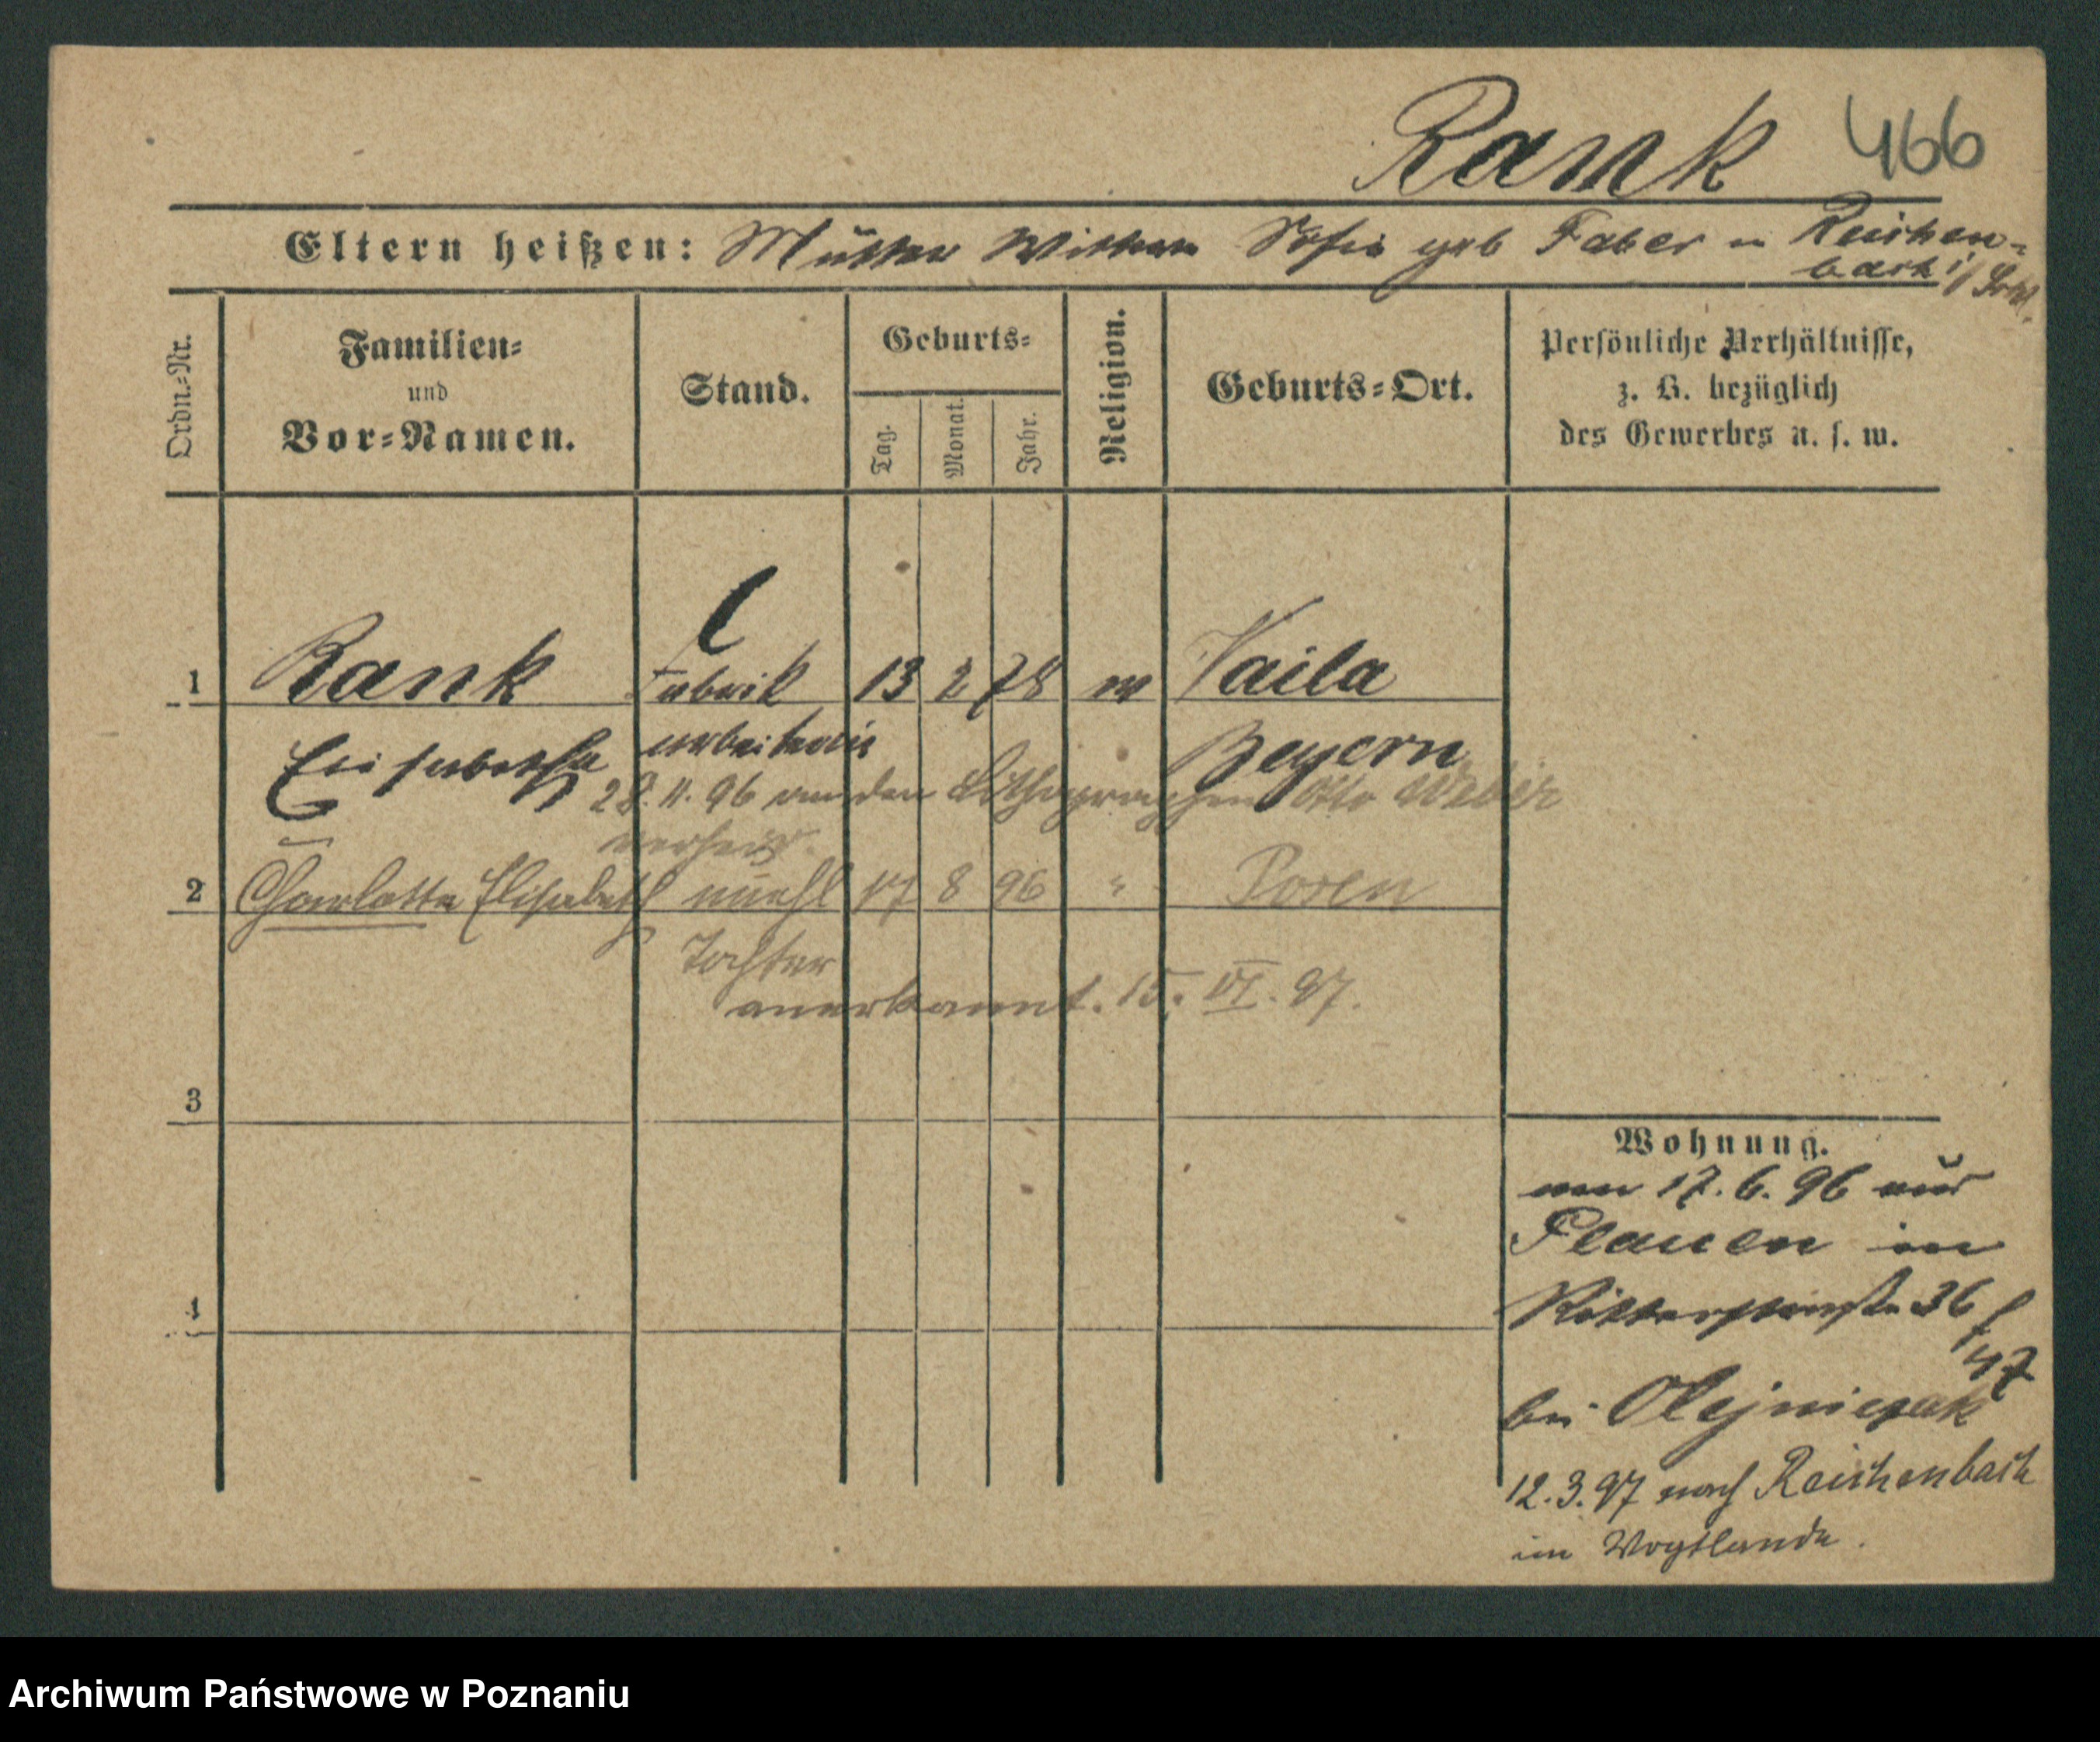 Rank 466
Eltern heißen: Mutter Witwe Sofie geb Faber in Reichen-
bach i/
Ordn.-Nr.
Familien-
und
Vor-Namen.
Stand.
Geburts-
Tag.
Monat.
Jahr.
Religion.
Geburts-Ort.
Persönliche Verhältnisse,
z. B. bezüglich
des Gewerbes u. s. w.
1 Rank Fabrik 13 2 78 Vaila
Elisabetha arbeiterin Bayern
28. 11. 96 an den Lithographen Otto Weber
verheir.
2 Charlotte Elisabeth unehl 17 8 96 " Posen
Tochter
anerkannt. 15. VI. 97.
3
4
Wohnung.
17. 6. 96 aus
Plauen in
Ritterstraße 36
47
bei Olejniczak
12.3.97 nach Reichenbach
im Vogtlande.
Archiwum Państwowe w Poznaniu